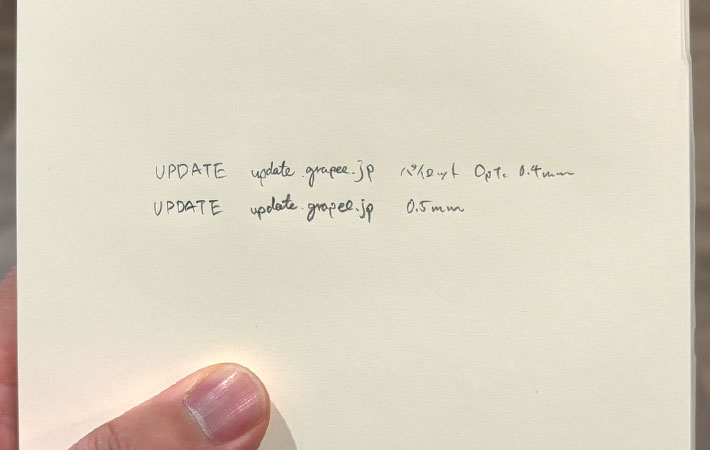 UPDATE update.grapee.jp パイロット Opt. 0.4mm
UPDATE update.grapee.jp 0.5mm